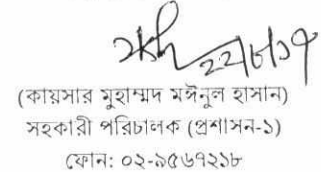 ২২/৮/১৭
(কায়সার মুহাম্মদ মঈনুল হাসান)
সহকারী পরিচালক (প্রশাসন-১)
ফোন: ০২-৯৫৬৭২১৮